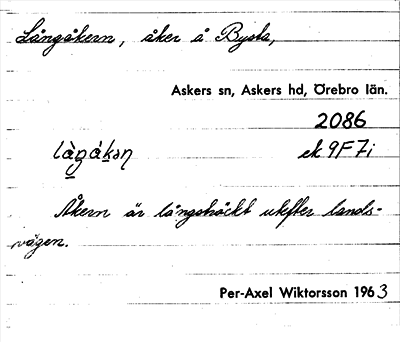 Långåkern, åker å Bysta,
Askers sn, Askers hd, Örebro län.
2086
ek 9F7i
Åkern är långsträckt utefter lands-
vägen.
Per-Axel Wiktorsson 1963